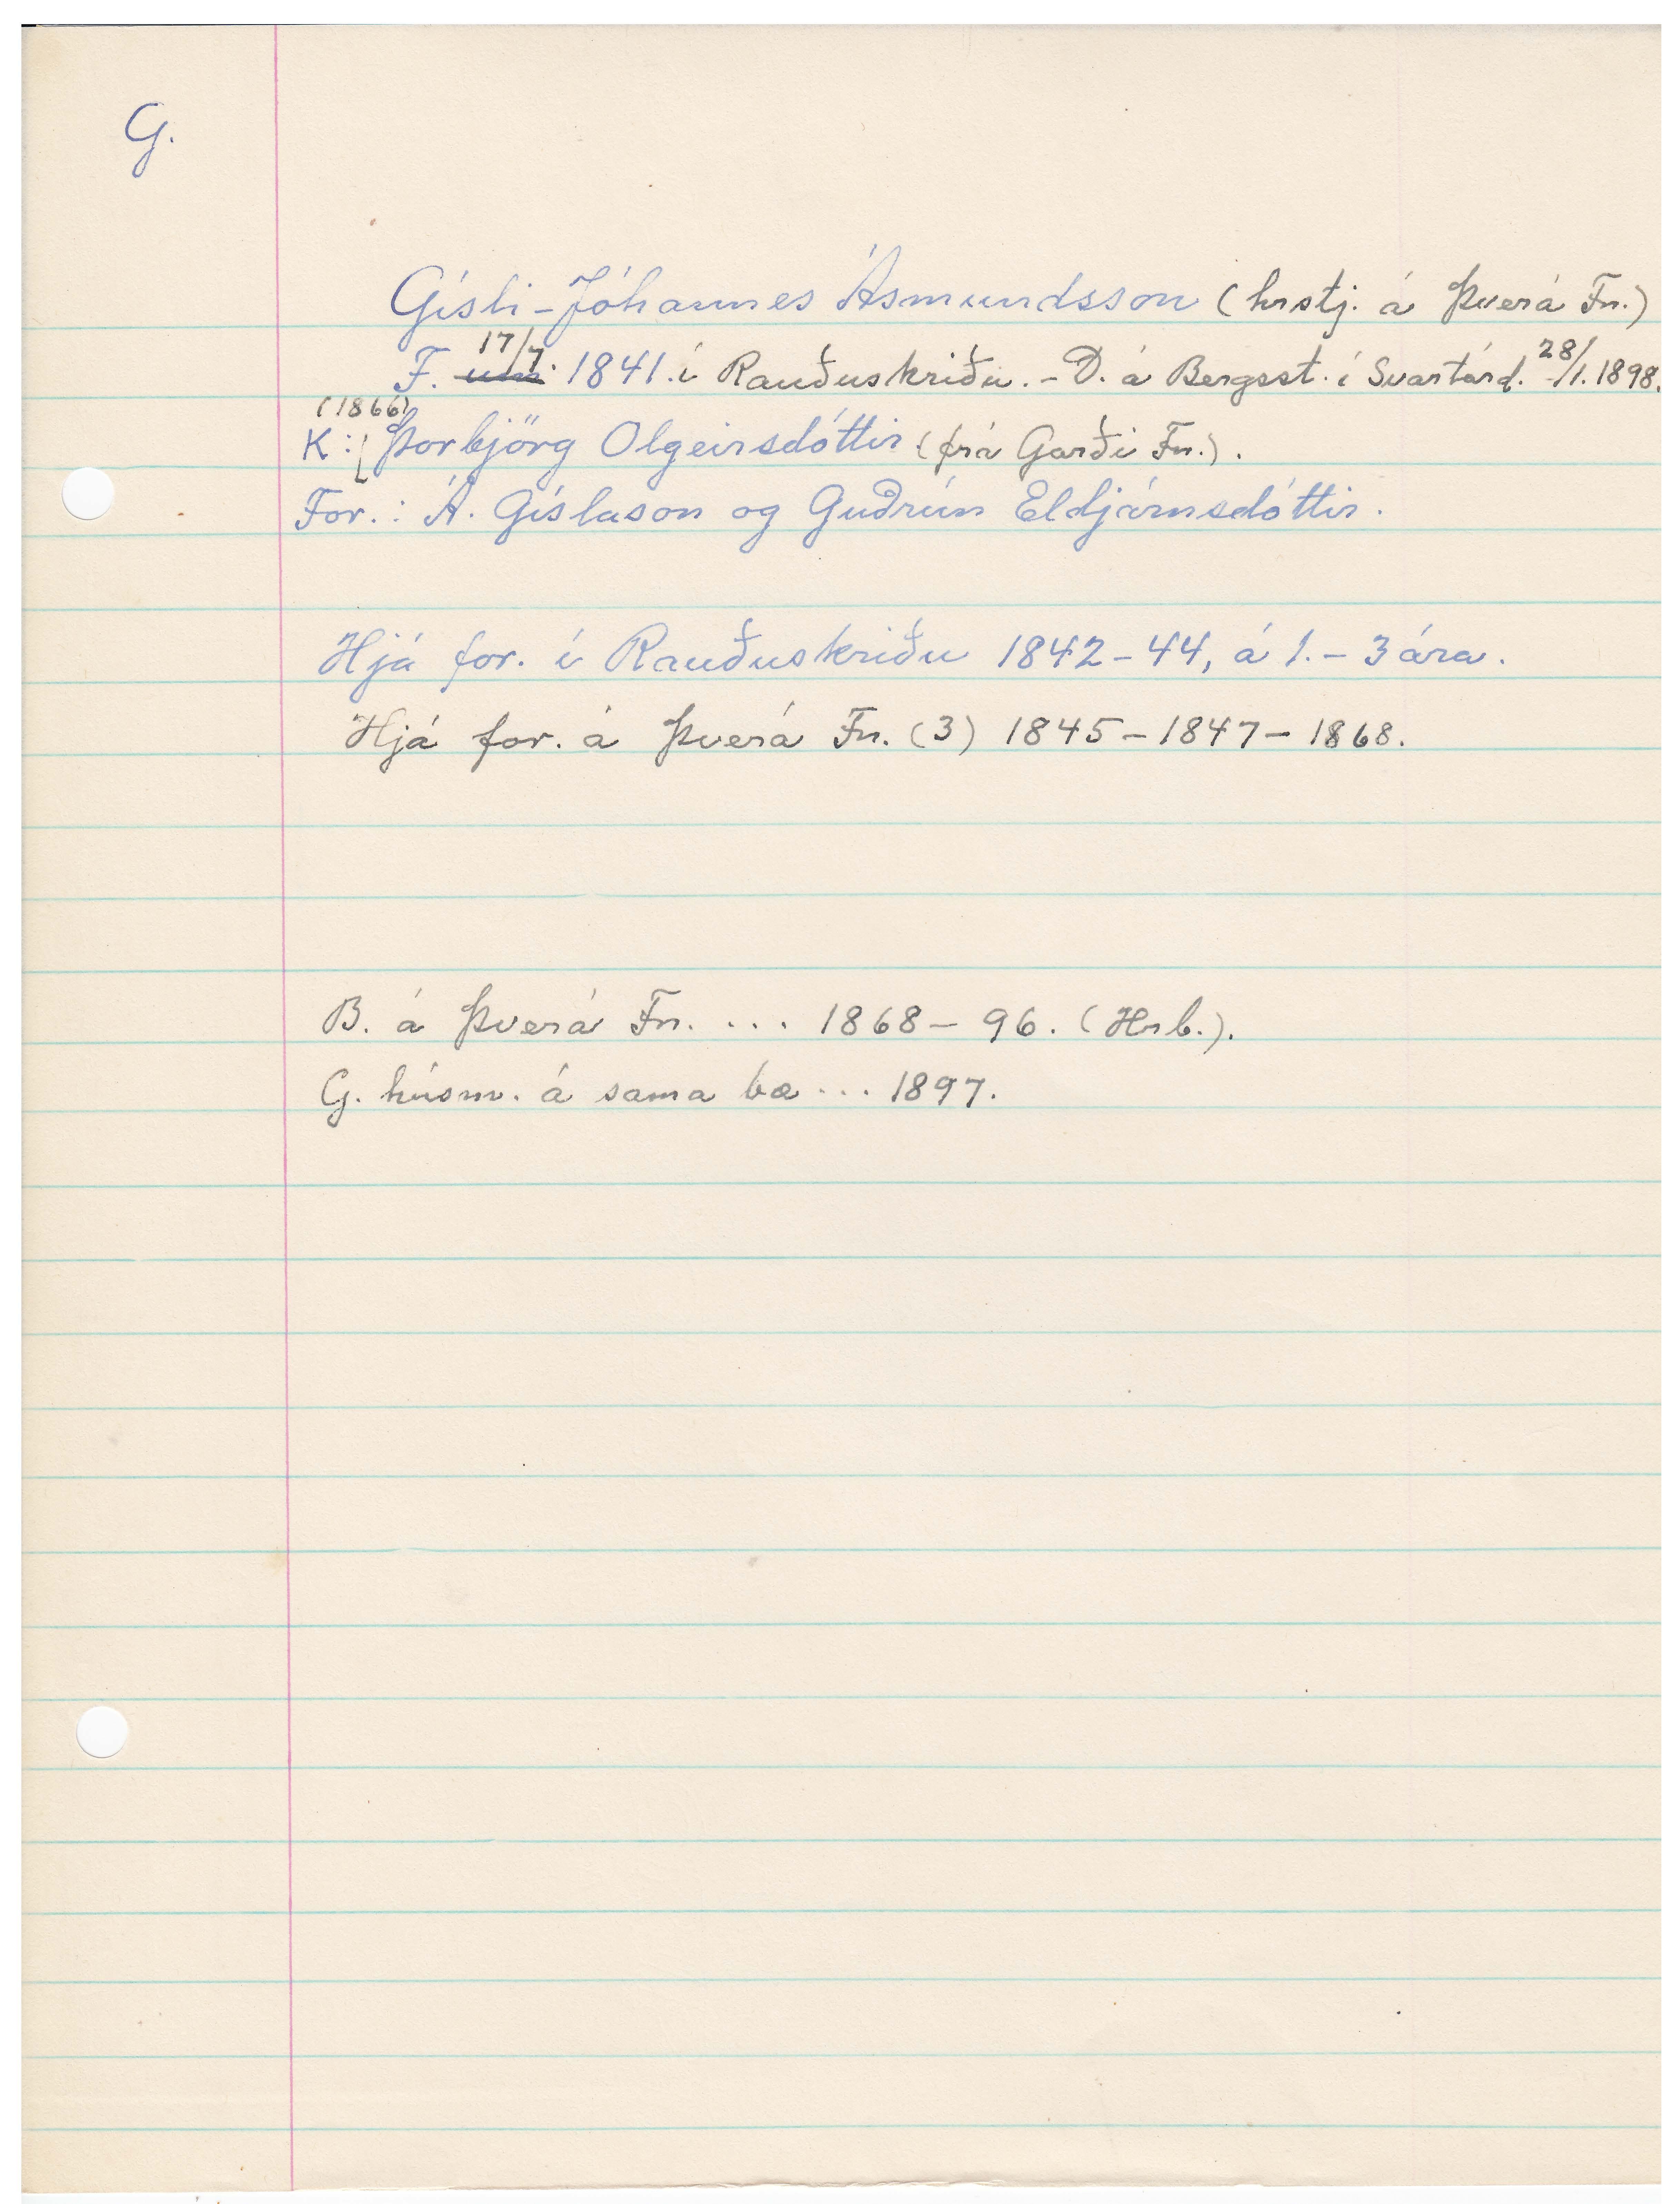 G.
Gísli-Jóhannes Ásmundsson (hrstj. á Þverá Fn.)
F. 17/7. 1841. í Rauðuskriðu. - D. á Bergsst. í Svartárd. 28/1. 1898.
(1866)
K: Þorbjörg Olgeirsdóttir (frá Garði Fn.).
For.: Á. Gíslason og Guðrún Eldjárnsdóttir.
Hjá for. í Rauðuskriðu 1842-44, á 1.-3 ára.
Hjá for. á Þverá Fn. (3) 1845-1847-1868.
B. á Þverá Fn. ... 1868-96. (Hrb.).
G. húsm. á sama bæ ... 1897.